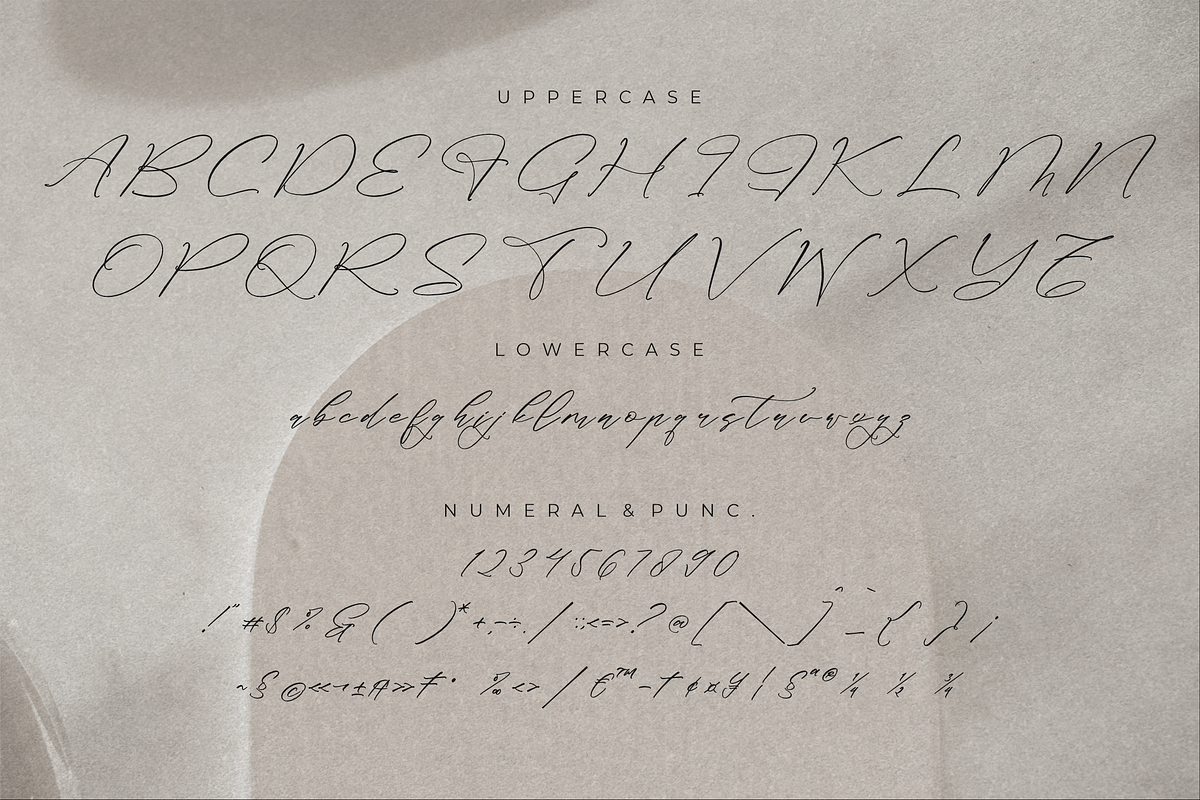 UPPERCASE
ABCDEFGHIJKLMN
OPQRSTUVWXYZ
LOWERCASE
abcdefghijklmnopqrstuvwxyz
NUMERAL & PUNC.
1234567890
!"#$%&( )*+,-÷./:;<=>?@[\]^_¯{ }¡
~§©««¬±₳»Ŧ· ‰<>/€™–†¢¤¥¦§ª®¼ ½ ¾